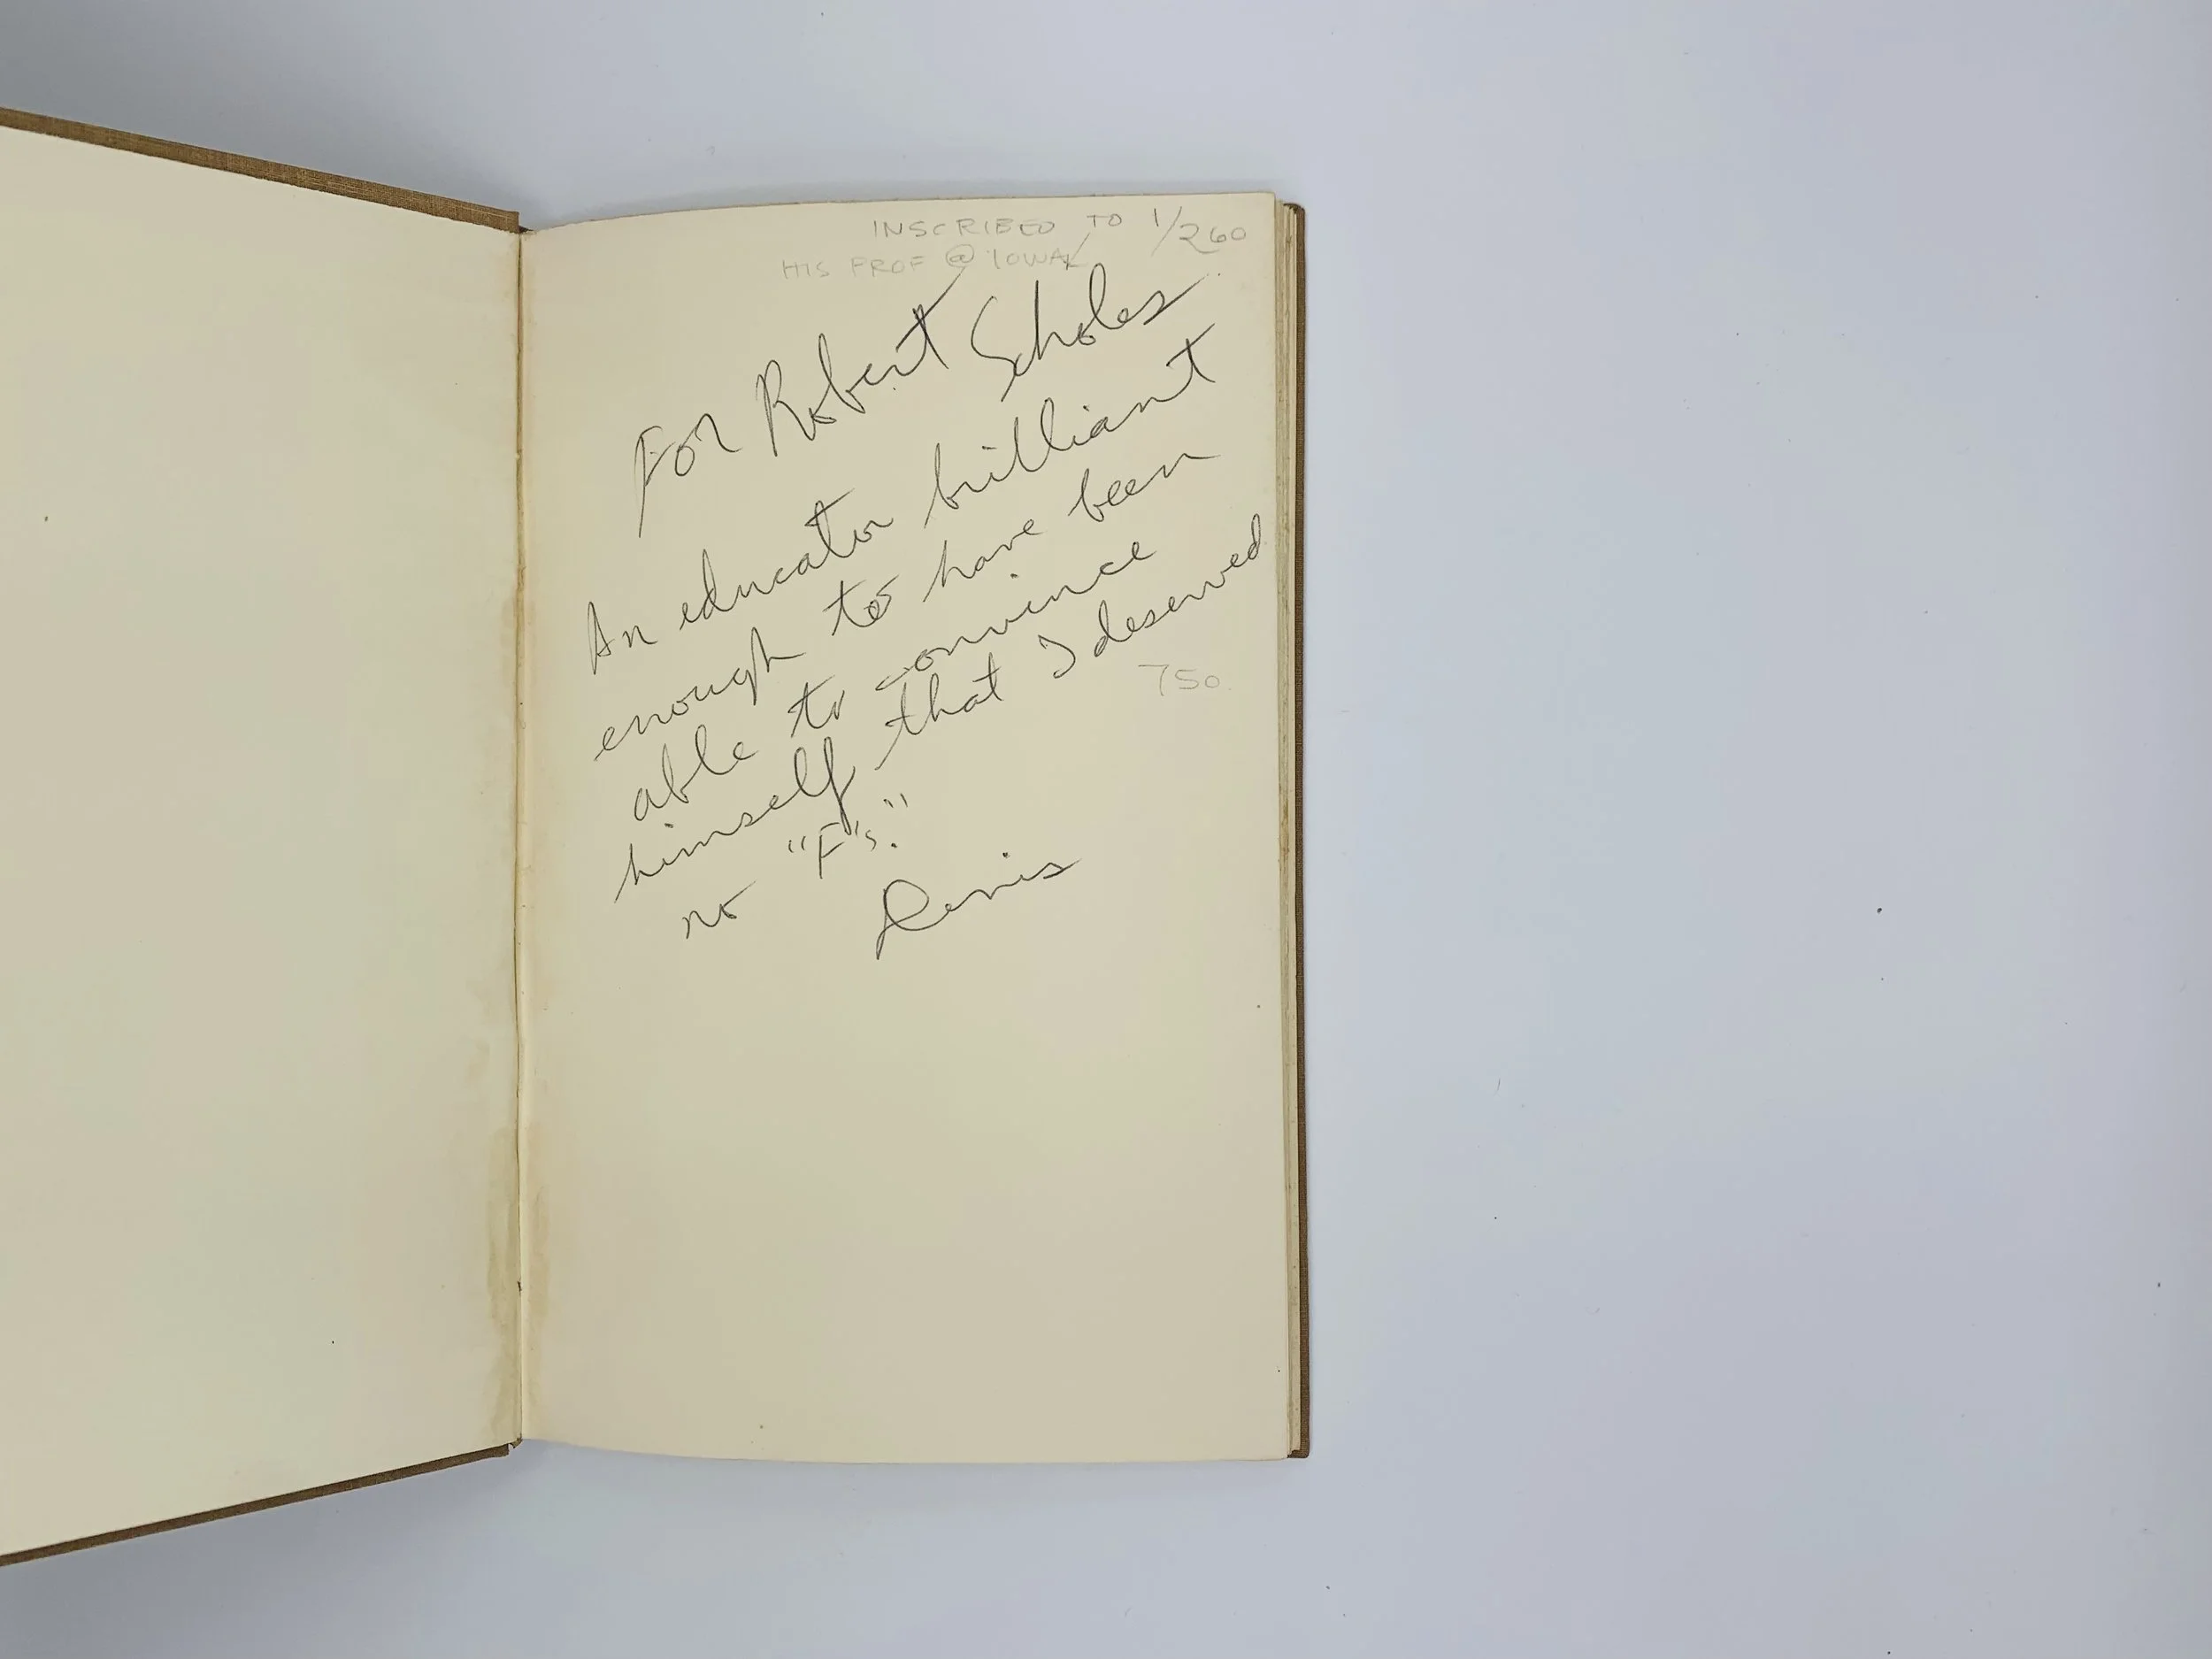 INSCRIBED TO 1/260
HIS PROF @ IOWA
For Robert Scholes
An educator brilliant
enough to have been
able to convince
himself that I deserved
750
no "F's."
Denis